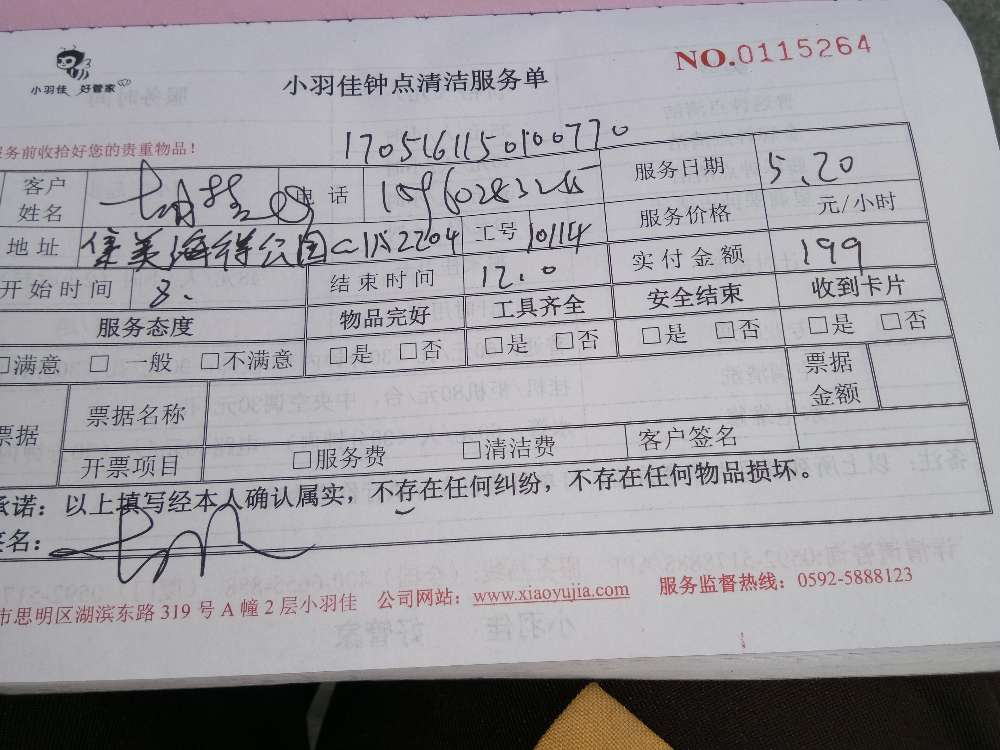 小羽佳 好管家
小羽佳钟点清洁服务单
NO.0115264
服务前收拾好您的贵重物品！
1705161150100770
客户姓名 电话 服务日期 5.20
地址 集美海得公园 2204 工号 10114 服务价格 元/小时
开始时间 8. 结束时间 12.0 实付金额 199
服务态度 物品完好 工具齐全 安全结束 收到卡片
□满意 □ 一般 □不满意 □是 □否 □是 □否 □是 □否 □是 □否
票据 票据名称 票据金额
开票项目 □服务费 □清洁费 客户签名
承诺：以上填写经本人确认属实，不存在任何纠纷，不存在任何物品损坏。
签名：
市思明区湖滨东路 319 号 A 幢 2 层小羽佳 公司网站：www.xiaoyujia.com 服务监督热线：0592-5888123